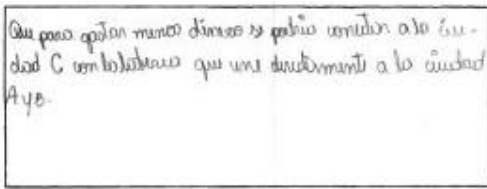 Que para gastar menos dinero se podria conectar a la ciu-
dad C con la tuberia que une directamente a la ciudad
A y B.